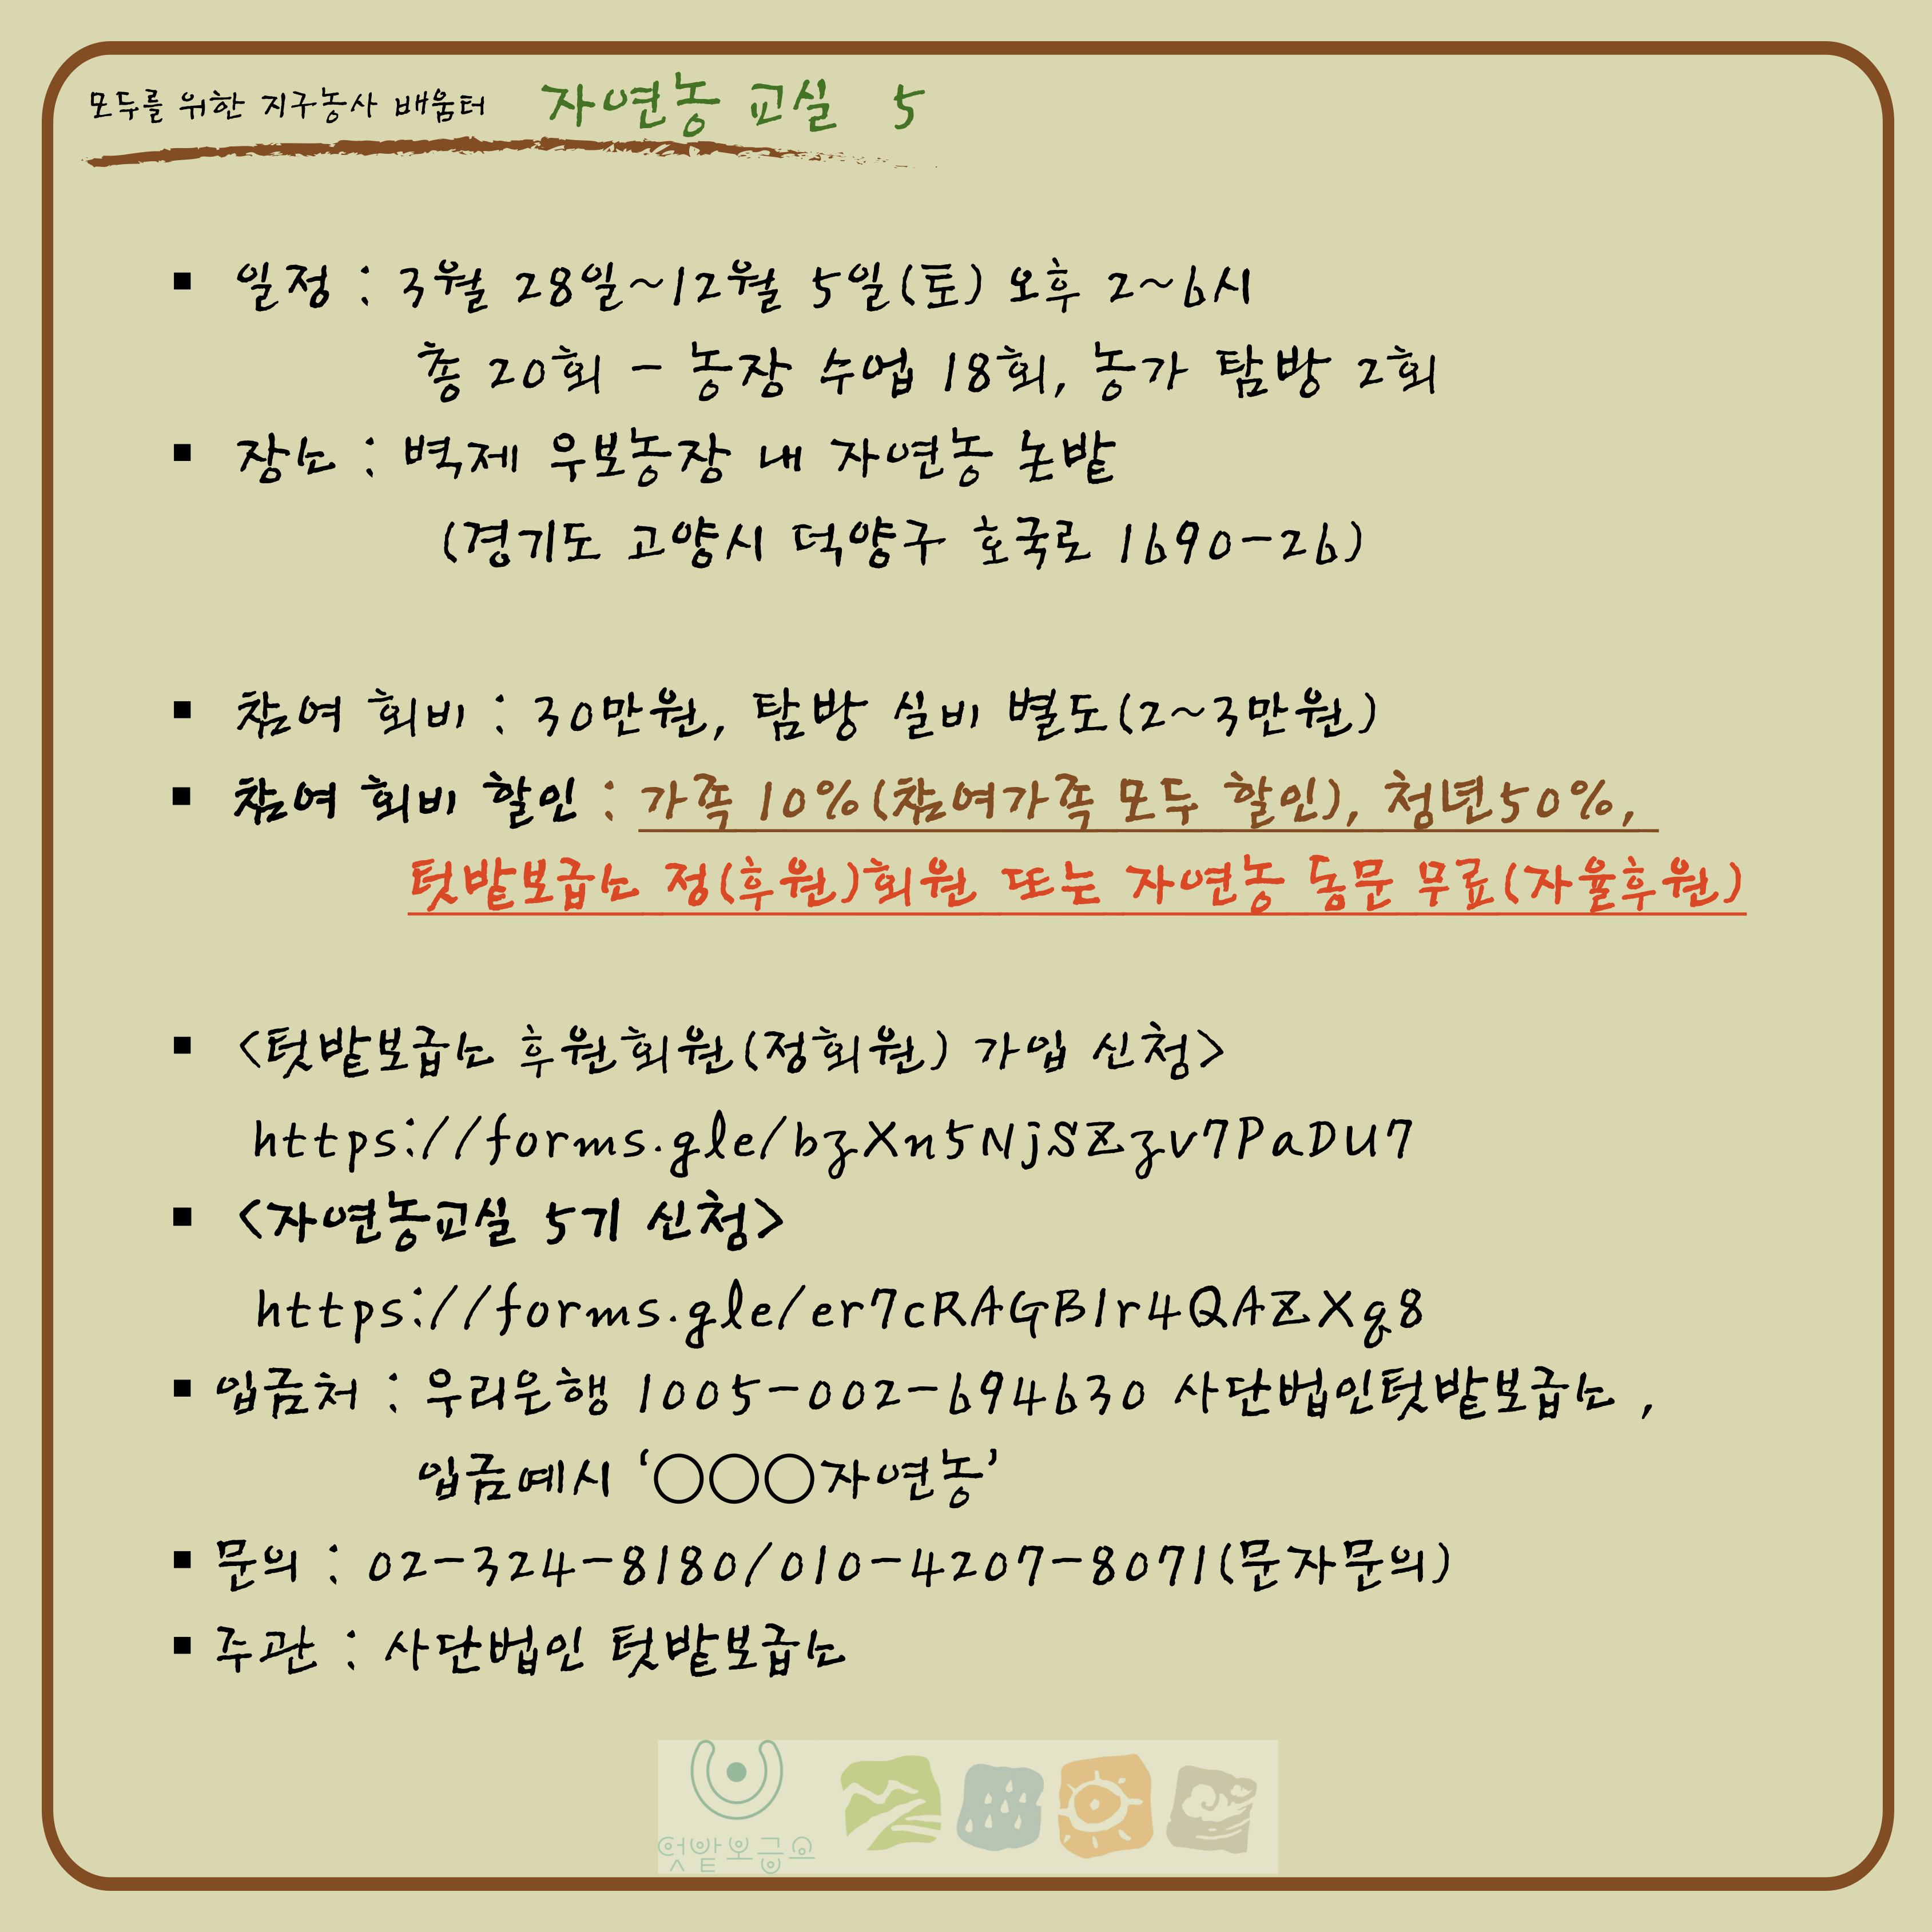 모두를 위한 지구농사 배움터 자연농 교실 5
▪ 일정 : 3월 28일~12월 5일(토) 오후 2~6시
총 20회 - 농장 수업 18회, 농가 탐방 2회
▪ 장소 : 벽제 우보농장 내 자연농 논밭
(경기도 고양시 덕양구 호국로 1690-26)
▪ 참여 회비 : 30만원, 탐방 실비 별도(2~3만원)
▪ 참여 회비 할인 : 가족 10%(참여가족 모두 할인), 청년50%,
텃밭보급소 정(후원)회원 또는 자연농 동문 무료(자율후원)
▪ <텃밭보급소 후원회원(정회원) 가입 신청>
https://forms.gle/bzXn5NjSZzv7PaDU7
▪ <자연농교실 5기 신청>
https://forms.gle/er7cRAGB1r4QAZXg8
▪ 입금처 : 우리은행 1005-002-694630 사단법인텃밭보급소 ,
입금예시 ‘○○○자연농’
▪ 문의 : 02-324-8180/010-4207-8071(문자문의)
▪ 주관 : 사단법인 텃밭보급소
텃밭보급소